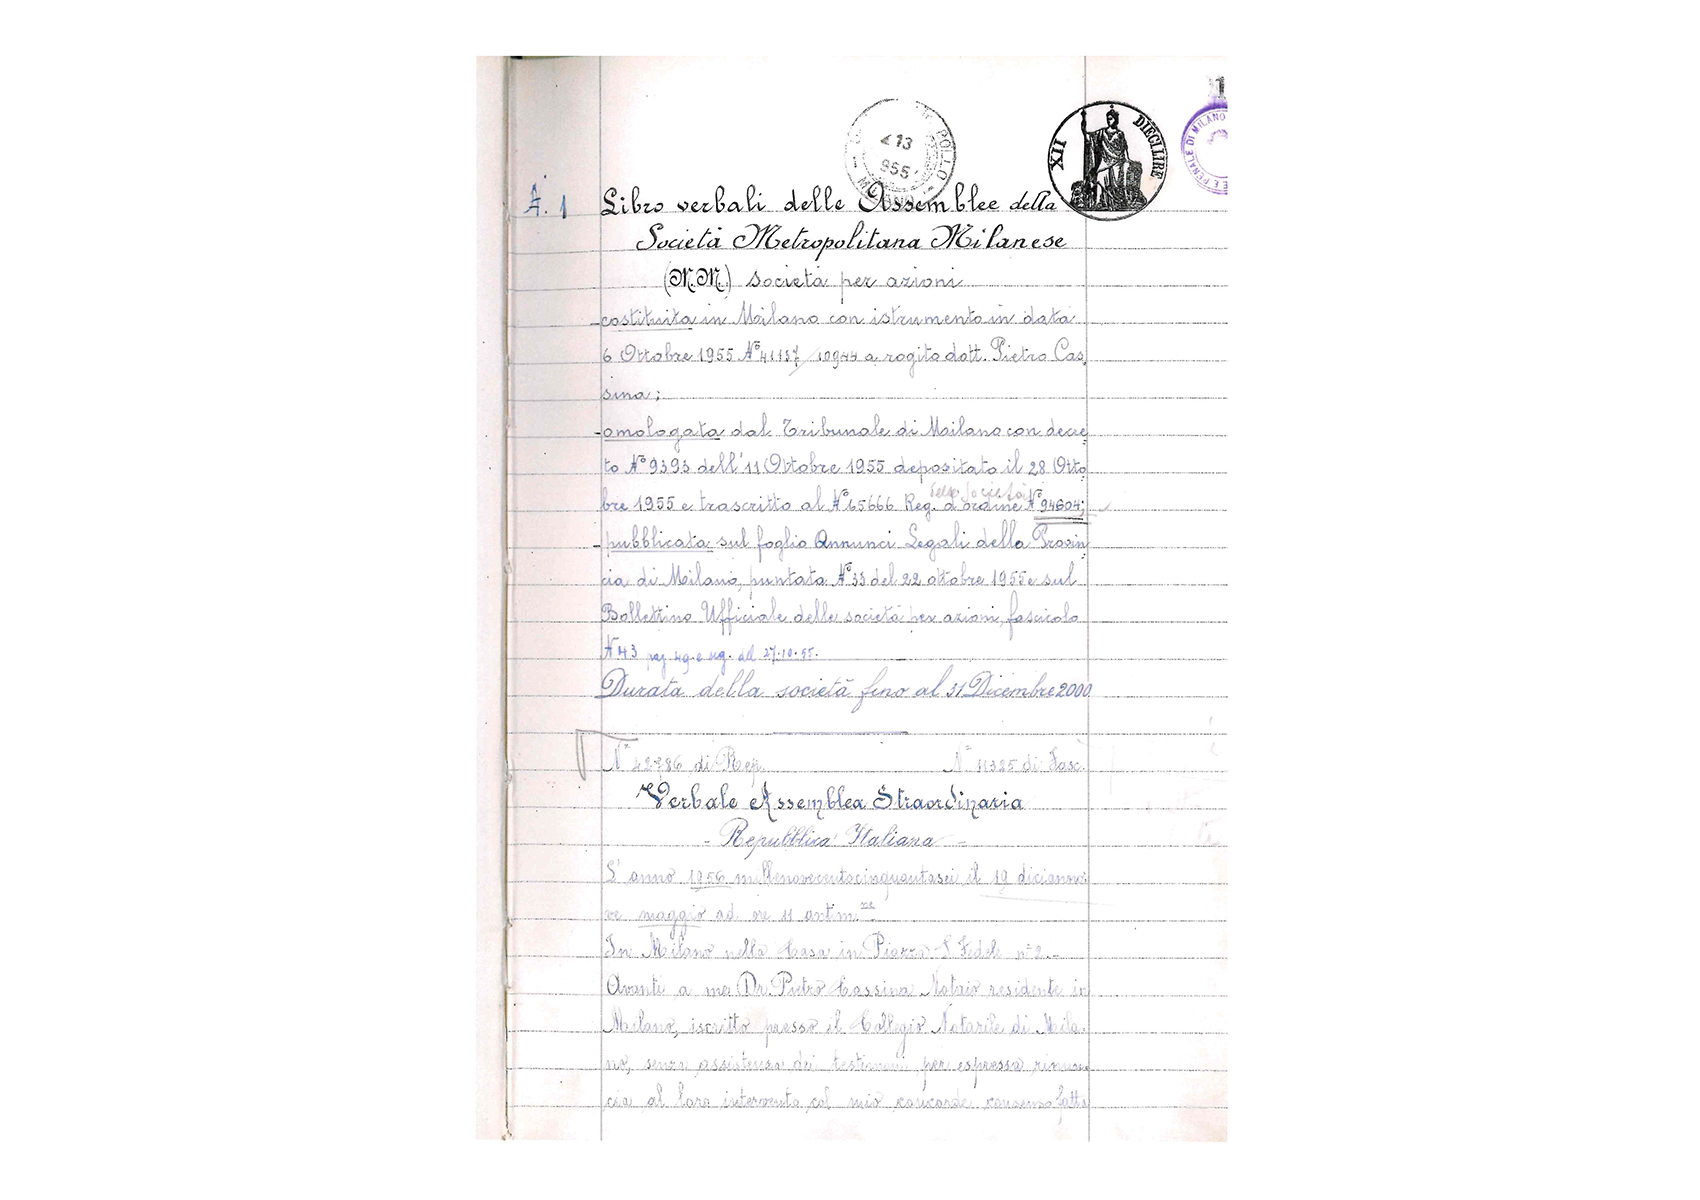 1
XII DIECI LIRE
POLLO
213
955
E PENALE DI MILANO
A. 1
Libro verbali delle Assemblee della
Società Metropolitana Milanese
(M.M.) società per azioni
-costituita in Milano con istrumento in data
6 Ottobre 1955 N° 41137/10944 a rogito dott. Pietro Cas
sina;
-omologata dal Tribunale di Milano con decre
to N° 9393 dell'11 Ottobre 1955 depositato il 28 Otto
delle Società
bre 1955 e trascritto al N° 65666 Reg. d'ordine N° 94604;
-pubblicata sul foglio Annunci Legali della Provin
cia di Milano, puntata N° 33 del 22 ottobre 1955 e sul
Bollettino Ufficiale delle società per azioni, fascicolo
N° 43 pag. 49 e seg. del 27.10.55.
Durata della società fino al 31 Dicembre 2000
N° 42786 di Rep. N° 11325 di Fasc.
Verbale Assemblea Straordinaria
- Repubblica Italiana -
L'anno 1956 millenovecentocinquantasei il 19 dicianno
ve maggio ad ore 11 antim.ne
In Milano nella Casa in Piazza S. Fedele n° 2.-
Avanti a me Dr. Pietro Cassina Notaio residente in
Milano, iscritto presso il Collegio Notarile di Mila-
no, senza assistenza dei testimoni, per espressa rinun
cia al loro intervento, col mio concorde consenso fatta